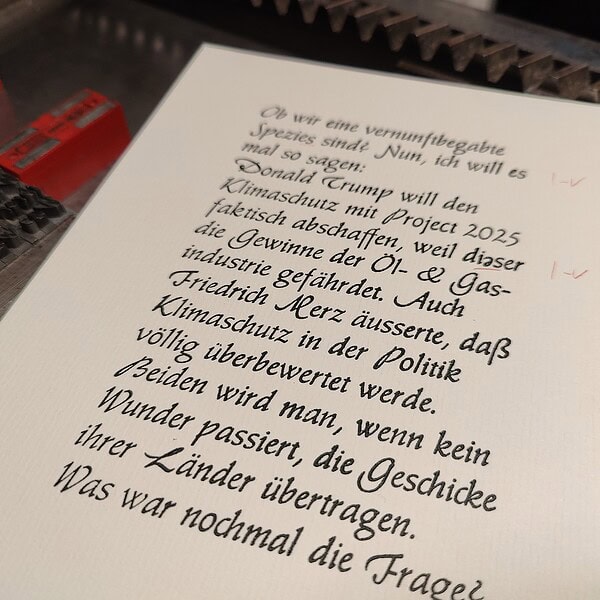 Ob wir eine vernunftbegabte
Spezies sind? Nun, ich will es
mal so sagen:
Donald Trump will den
Klimaschutz mit Project 2025
faktisch abschaffen, weil diəser
die Gewinne der Öl- & Gas-
industrie gefährdet. Auch
Friedrich Merz äusserte, daß
Klimaschutz in der Politik
völlig überbewertet werde.
Beiden wird man, wenn kein
Wunder passiert, die Geschicke
ihrer Länder übertragen.
Was war nochmal die Frage?